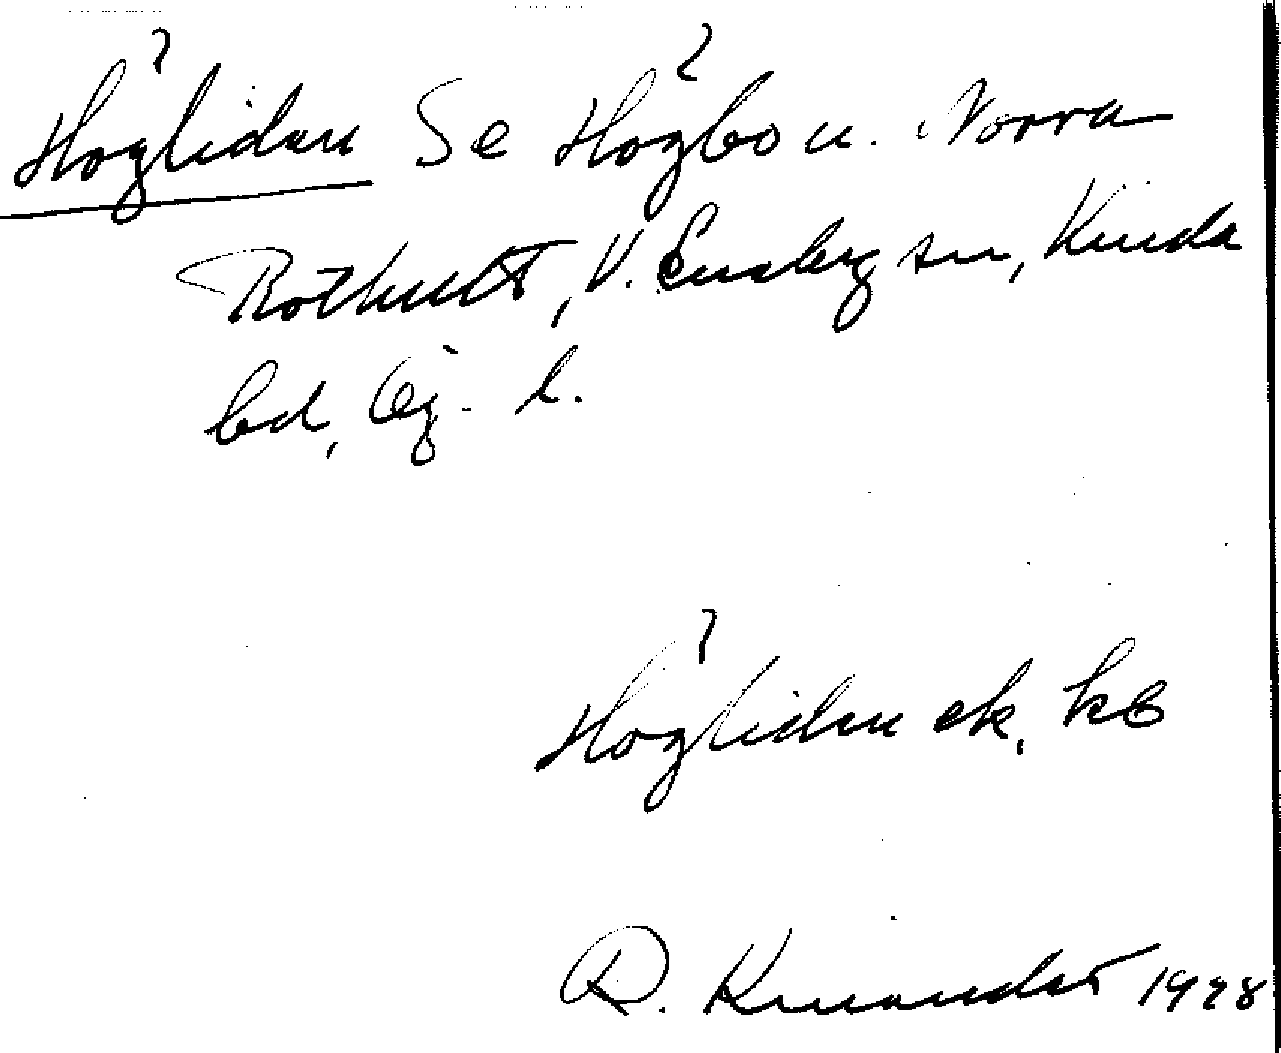 Höglidan Se Högbo u. Norra
Rothult, V. Eneby sn, Kinda
hd, Ög. l.
Höglidan ek, kb
R. 1928